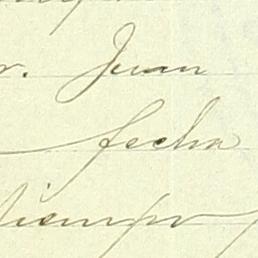 r. Juan
fecha
tiempo